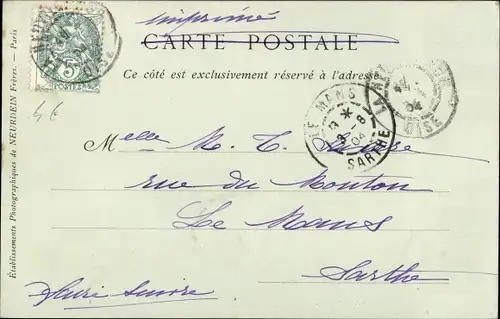 imprimé
CARTE POSTALE
Ce côté est exclusivement réservé à l'adresse
5
POSTES
46
LE MANS
*
8
04
SARTHE
04
OISE
Melle M. T.
rue du Mouton
Le Mans
Sarthe
faire suivre
Établissements Photographiques de NEURDEIN Frères. — Paris